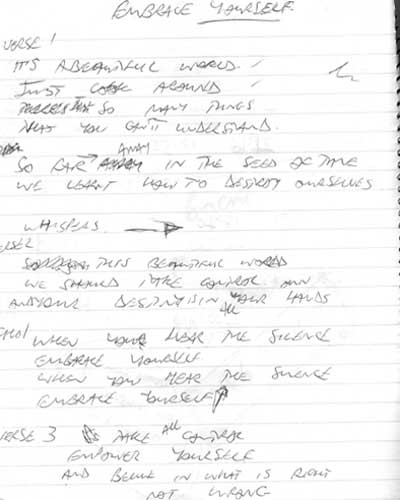 EMBRACE YOURSELF
VERSE 1
IT'S A BEAUTIFUL WORLD.
JUST LOOK AROUND
THERES SO MANY THINGS
THAT YOU CAN'T UNDERSTAND.
AWAY
SO FAR IN THE SEED OF TIME
WE LEARNT HOW TO DESTROY OURSELVES
WHISPERS
THIS BEAUTIFUL WORLD
WE SHOULD TAKE CONTROL OWN
AND YOUR DESTINY IS IN YOUR HANDS
ALL
WHEN YOU HEAR THE SILENCE
EMBRACE YOURSELF
WHEN YOU HEAR THE SILENCE
EMBRACE YOURSELF
VERSE 3 TAKE ALL CONTROL
EMPOWER YOURSELF
AND BELIVE IN WHAT IS RIGHT
NOT WRONG